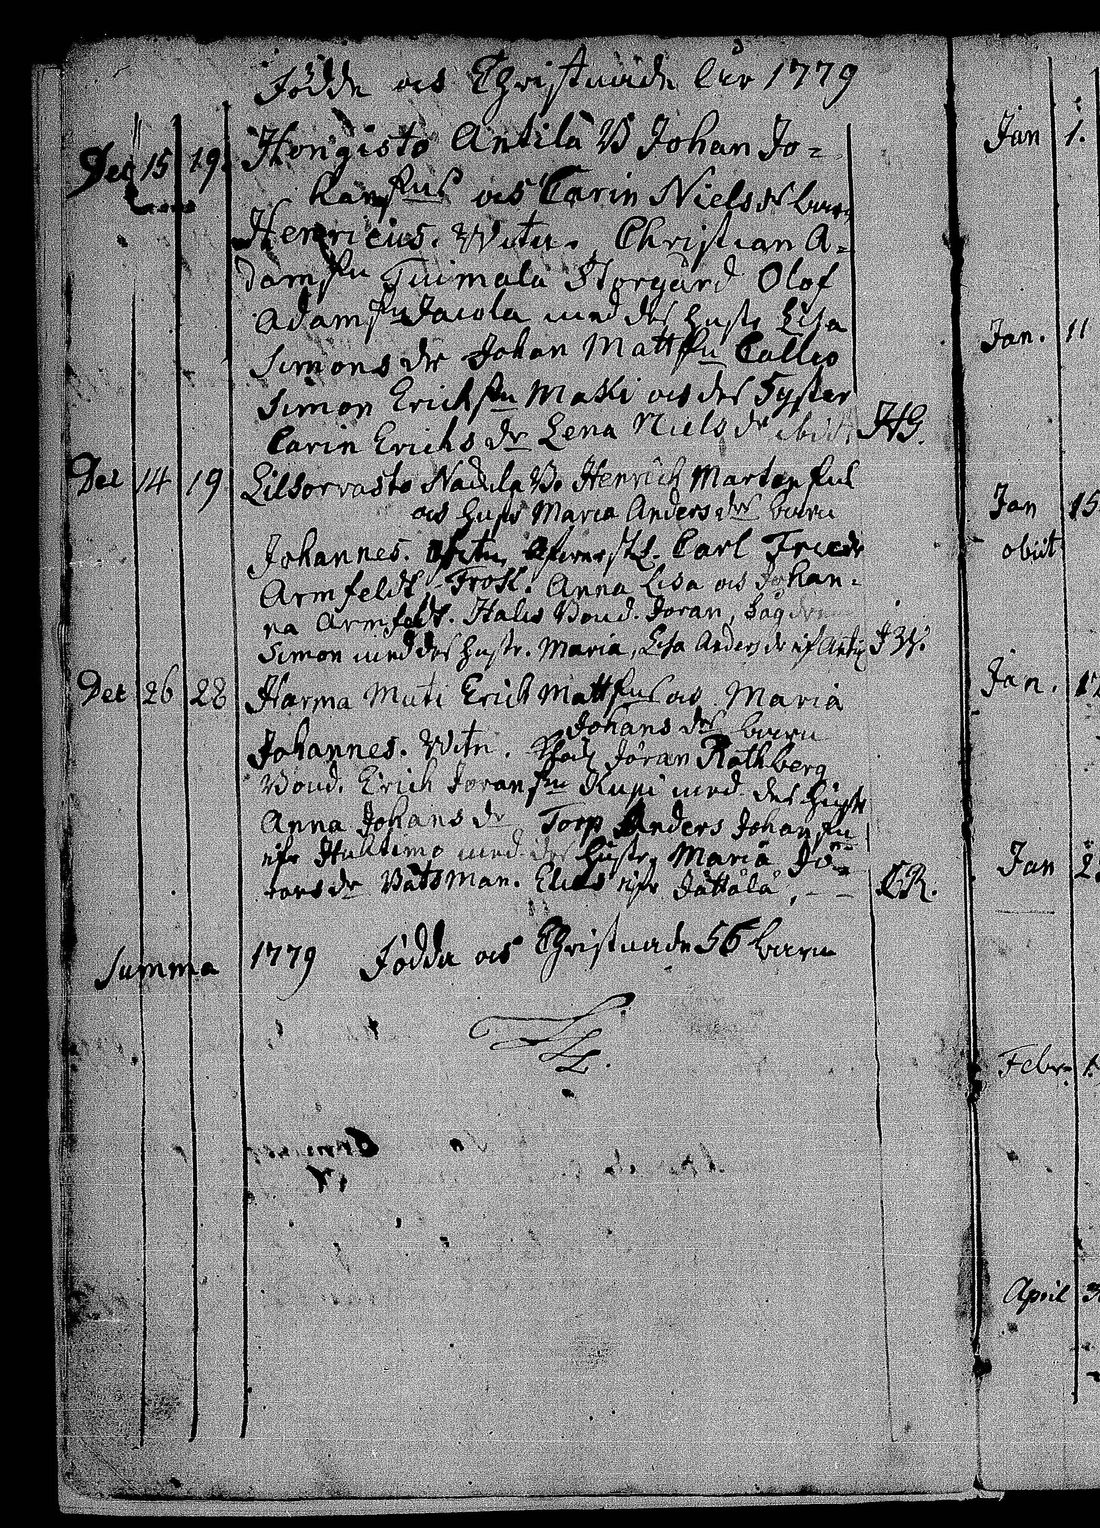 Födde och Christnade åhr 1779
Dec 15 19. Hongisto Antila B Johan Jo=
hansSons och Carin Nielsdr barn
Henricus. Witn. Christian A=
damsSn Tuimala Storgård Olof
AdamsSn Jacola med des hustr Lisa
Simonsdr Johan MattsSn Callio
Simon ErichsSn Mäki och des Syster
Carin Erichsdr Lena Nielsdr ibid. HG.
Dec 14 19 Lilsorvasto Bo. Henrich MartenSons
och hustr Maria Andersdrs barn
Johannes. Witn. Carl Friedr
Armfeldt Frök. Anna Lisa och Johan=
na Armfeldt. Bond. Joran,
Simon med des hustr. Maria, Lisa Andersdr if
Dec 26 28 Harma Erich MattsSons och Maria
Johansdrs barn
Johannes. Witn. Jöran Rothberg
Bond. Erich JoransSn Kupi med des hustr
Anna Johansdr Torp Anders JohansSn
med des hustr. Maria Jö=
ransdr Båtsman. ifr Jättälä, CR.
Summa 1779 Födda och Christnade 56 barn
Jan 1.
Jan. 11
Jan 15
obiit
Jan. 17
Jan
Febr.
April